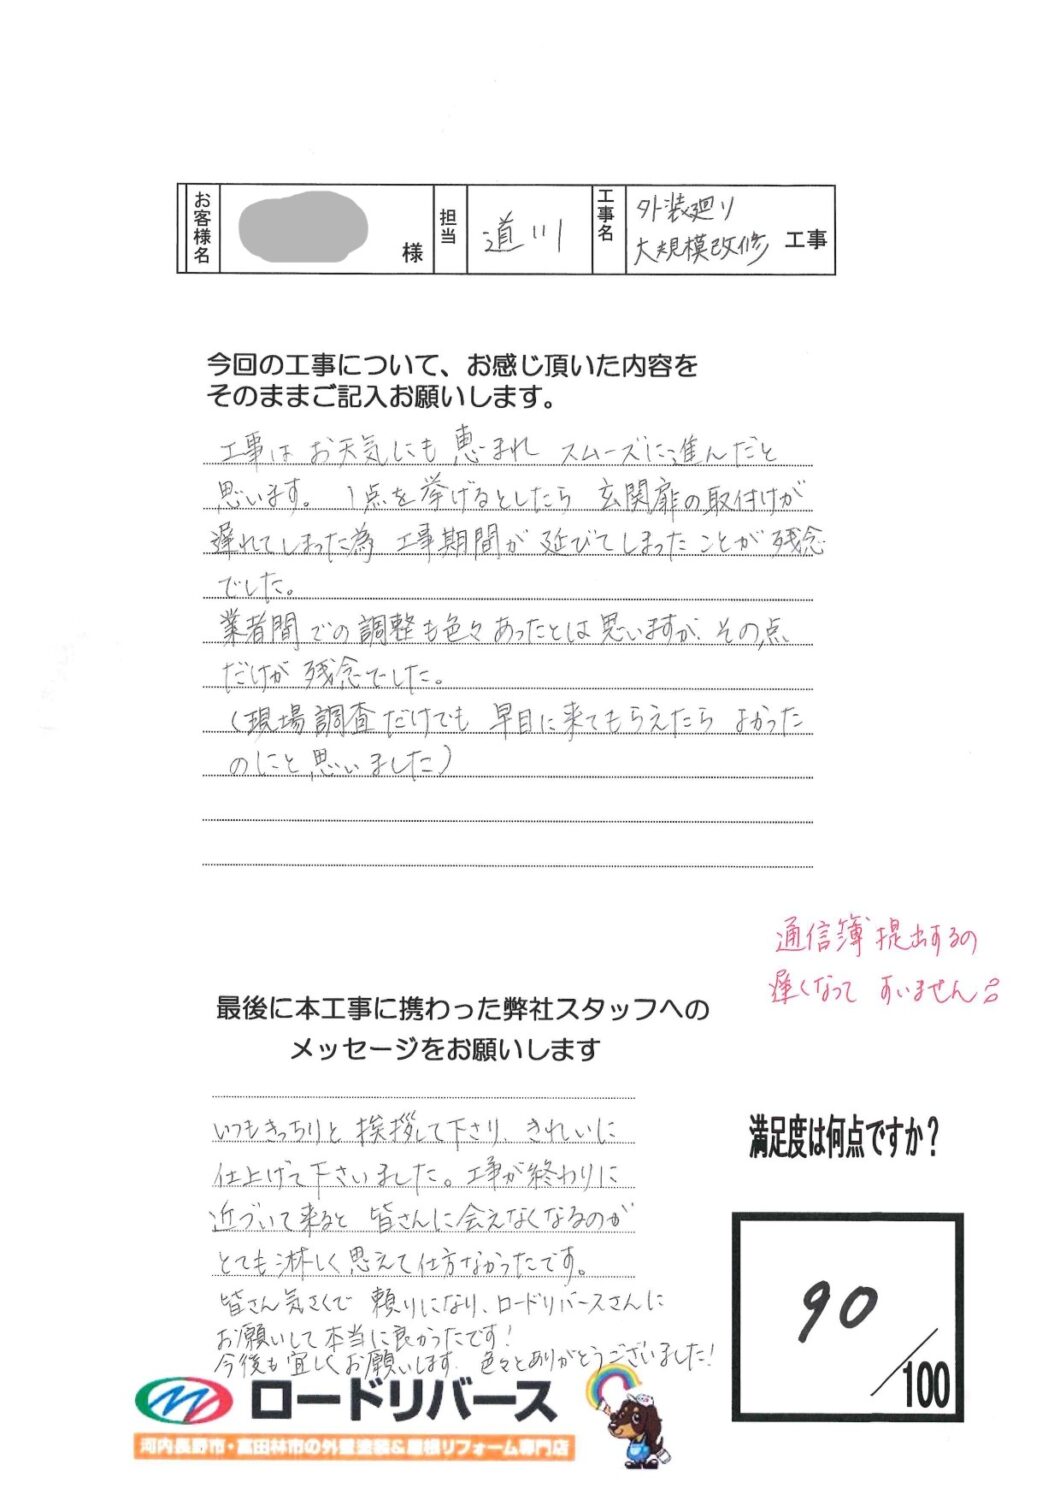 お客様名
様
担当
道川
工事名
外装廻り
大規模改修 工事
今回の工事について、お感じ頂いた内容を
そのままご記入お願いします。
工事はお天気にも恵まれ スムーズに進んだと
思います。1点を挙げるとしたら 玄関扉の取付けが
遅れてしまった為 工事期間が 延びてしまったことが残念
でした。
業者間での調整も色々あったとは思いますが、その点
だけが残念でした。
(現場調査だけでも 早目に来てもらえたら よかった
のにと思いました)
通信簿提出するの
遅くなって すいません
最後に本工事に携わった弊社スタッフへの
メッセージをお願いします
いつもきっちりと 挨拶して下さり、きれいに
仕上げて下さいました。工事が終わりに
近づいて来ると 皆さんに会えなくなるのが
とても淋しく思えて仕方なかったです。
皆さん気さくで 頼りになり、ロードリバースさんに
お願いして本当に良かったです!
今後も宜しくお願いします。色々とありがとうございました!
満足度は何点ですか?
90
/100
ロードリバース
河内長野市・富田林市の外壁塗装&屋根リフォーム専門店